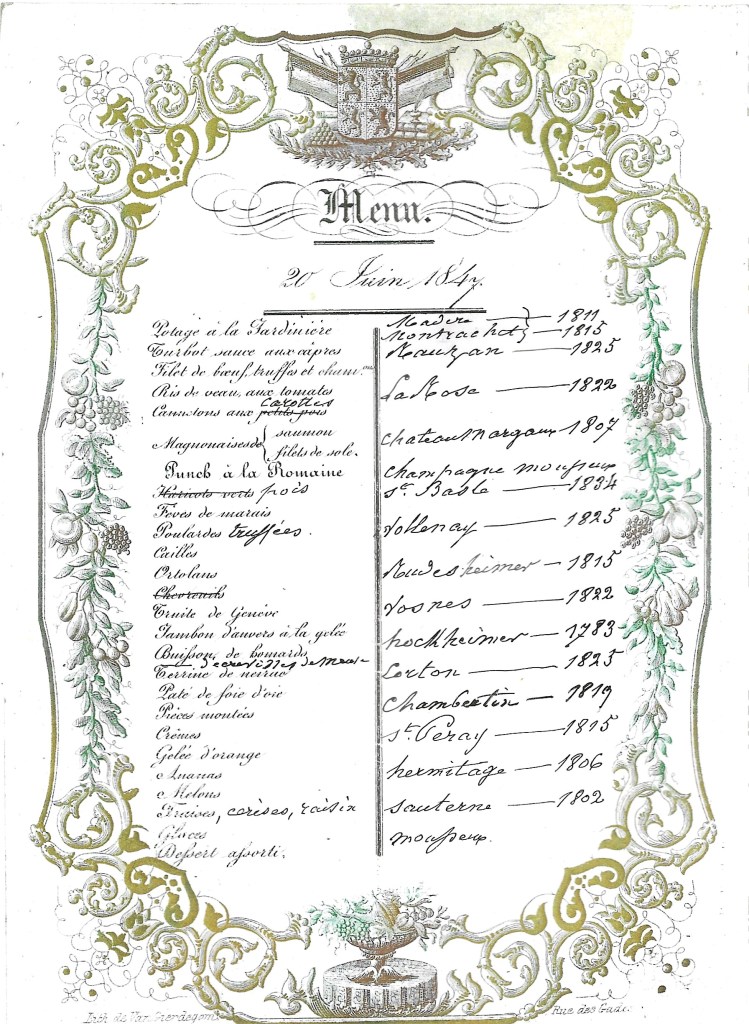 Menu.
20 Juin 1847.
Potage à la Jardinière
Turbot sauce aux câpres
Filet de bœuf, truffes et cham.ons
Ris de veau, aux tomates
carottes
Cannetons aux petits pois
Magnonaises de { saumon
filets de sole.
Punch à la Romaine
Haricots verts pois
Fèves de marais
Poulardes truffées.
Cailles
Ortolans
Chevreuils
Truite de Genève
Jambon d'anvers à la gelée
Buisson, de homards
d'écrevisses de meuse
Terrine de neirac
Paté de foie d'oie
Pièces montées
Crêmes
Gelée d'orange
Ananas
Melons
Fraises, cerises, raisin
Glaces
Dessert assorti.
Madère } — 1811
Montrachet } — 1815
Rauzan — 1825
La Rose — 1822
Chateau Margaux 1807
Champagne mousseux
St. Basle — 1834
Vollenay — 1825
Rudesheimer — 1815
Vosnes — 1822
hochheimer — 1783
Corton — 1825
Chambertin — 1819
St. Péray — 1815
hermitage — 1806
Sauterne — 1802
mousseux.
Lith de Van
Rue des